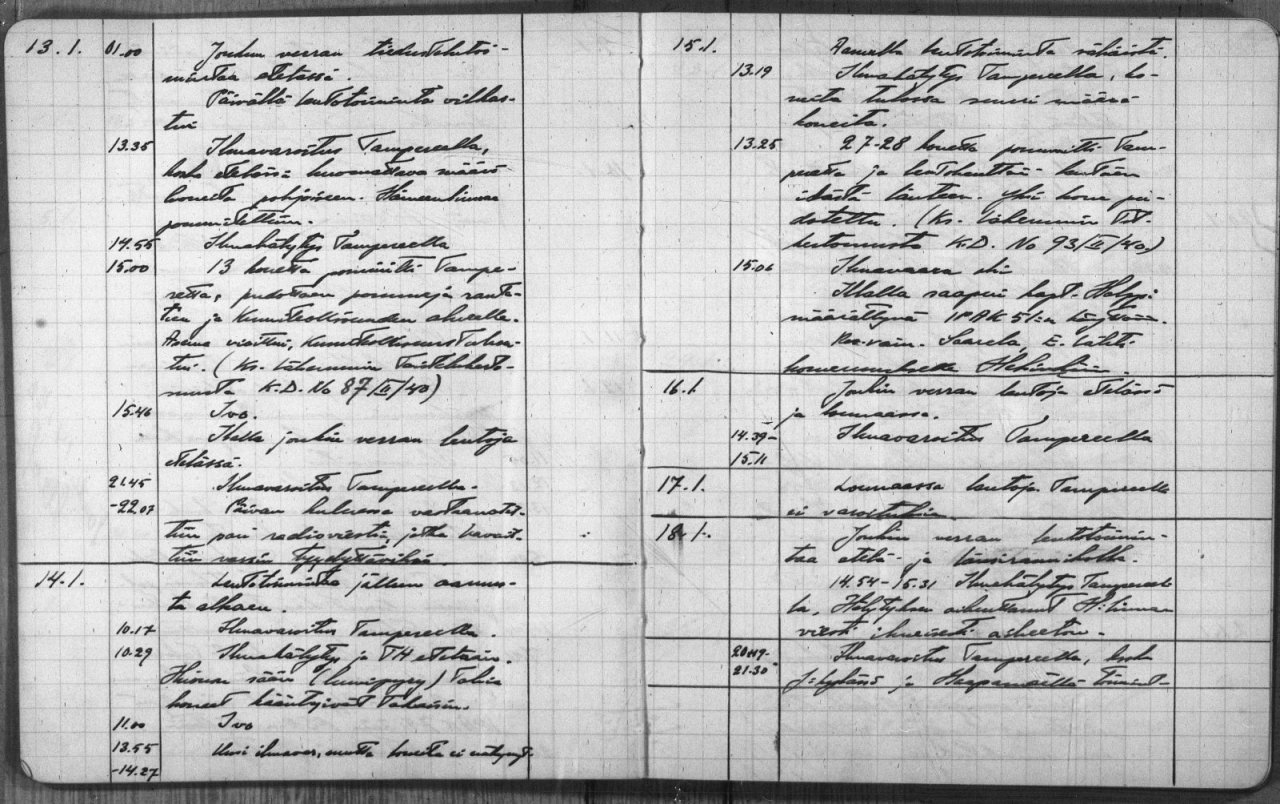 13.1. 01.00 Jonkun verran tiedustelutoi-
mintaa etelässä.
Päivällä lentotoiminta vilkas-
tui
13.35 Ilmavaroitus Tampereella,
koska etelässä huomattava määrä
koneita pohjoiseen. Hämeenlinnaa
pommitettiin.
14.55 Ilmahälytys Tampereella
15.00 13 konetta pommitti Tampe-
retta, pudottaen pommeja rauta-
tien ja Kumiteollisuuden alueelle.
Asema vioittui, Kumiteollisuus Tuhou-
tui. (Ks. Lähemmin Taistelukerto-
musta K.D. No 87/II/40)
15.46 Ivo.
Illalla jonkin verran lentoja
etelässä.
21.45 Ilmavaroitus Tampereella.
-22.07 Päivän kuluessa vastaanotet-
tiin pari radioviestiä, jotka
tiin varsin tyydyttäviksi
14.1. Lentotoiminta jälleen aamus-
ta alkaen.
10.17 Ilmavaroitus Tampereella.
10.29 Ilmahälytys ja TH etelään.
Huonon sään (lumipyry) Takia
koneet kääntyivät Takaisin.
11.00 Ivo
13.55 Uusi ilmavar., mutta koneita ei näkynyt.
-14.27
15.1. Aamulla lentotoiminta vähäistä.
13.19 Ilmahälytys Tampereella, ko-
neita tulossa suuri määrä
koneita.
13.25 27-28 konetta pommitti Tam-
peretta ja lentokenttää lentäen
idästä länteen. Yksi kone pu-
dotettu. (Ks. Lähemmin Tst.
kertomusta K.D. No 93/II/40)
15.06 Ilmavaara ohi
Illalla saapui kapt. Helppi
määrättynä IPAK 51:n
Res.vänr. Saarela E. läht.
komennukselle Helsinkiin.
16.1 Jonkin verran lentoja etelässä
ja lounaassa.
14.39- Ilmavaroitus Tampereella
15.11
17.1. Lounaassa lentoja. Tampereella
ei varoituksia
18.1. Jonkin verran lentotoimin-
taa etelä- ja länsirannikolla.
14.54-15.31 Ilmahälytys Tampereel-
la, Hälytyksen aiheuttanut H:linnan
viesti ilmeisesti aiheeton.
20.49- Ilmavaroitus Tampereella, kosk.
21.30 J:kylässä ja Haapamäellä